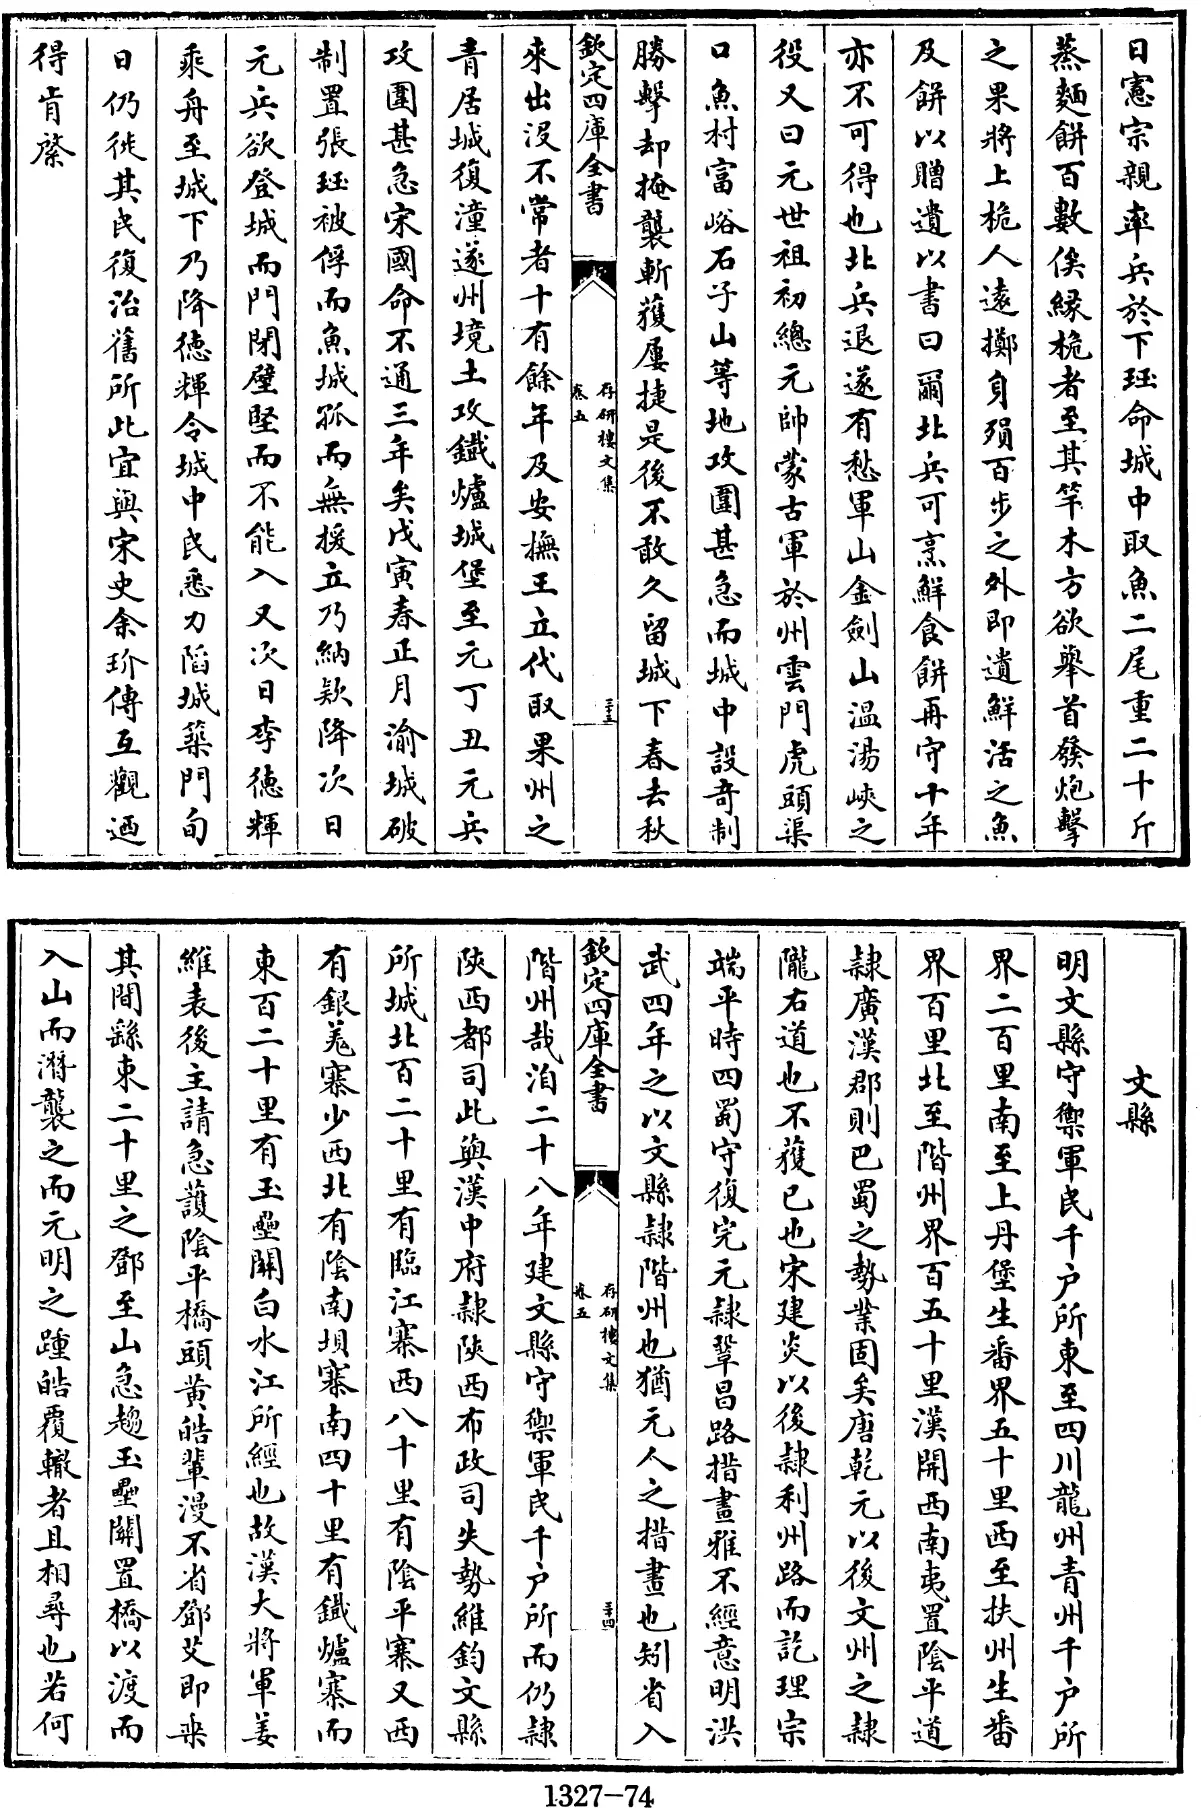 日憲宗親率兵於下珏命城中取魚二尾重二十斤
蒸麵餅百數俟緣桅者至其竿木方欲舉首發炮擊
之果將上桅人遠擲身殞百步之外即遺鮮活之魚
及餅以贈遺以書曰爾北兵可烹鮮食餅再守十年
亦不可得也北兵退遂有愁軍山金劍山温湯峽之
役又曰元世祖初總元帥蒙古軍於州雲門虎頭渠
口魚村富峪石子山等地攻圍甚急而城中設奇制
勝擊却掩襲斬獲屢捷是後不敢久留城下春去秋
欽定四庫全書
存研樓文集
卷五
三十三
來出沒不常者十有餘年及安撫王立代取果州之
青居城復潼遂州境土攻鐵爐城堡至元丁丑元兵
攻圍甚急宋國命不通三年矣戊寅春正月渝城破
制置張珏被俘而魚城孤而無援立乃納欵降次日
元兵欲登城而門閉壁堅而不能入又次日李德輝
乘舟至城下乃降德輝令城中民悉力陷城築門旬
日仍徙其民復治舊所此宜與宋史余玠傳互觀迺
得肯綮
文縣
明文縣守禦軍民千户所東至四川龍州青州千户所
界二百里南至上丹堡生番界五十里西至扶州生番
界百里北至階州界百五十里漢開西南夷置陰平道
隷廣漢郡則巴蜀之勢業固矣唐乾元以後文州之隷
隴右道也不獲已也宋建炎以後隷利州路而訖理宗
端平時四蜀守復完元隷鞏昌路措畫雅不經意明洪
武四年之以文縣隷階州也猶元人之措畫也矧省入
欽定四庫全書
存研樓文集
卷五
三十四
階州哉洎二十八年建文縣守禦軍民千户所而仍隷
陜西都司此與漢中府隷陜西布政司失勢維鈞文縣
所城北百二十里有臨江寨西八十里有陰平寨又西
有銀羌寨少西北有陰南坝寨南四十里有鐵爐寨而
東百二十里有玉壘關白水江所經也故漢大將軍姜
維表後主請急護陰平橋頭黄皓輩漫不省鄧艾即乗
其間繇東二十里之鄧至山急趨玉壘關置橋以渡而
入山而潛襲之而元明之踵皓覆轍者且相尋也若何
1327-74